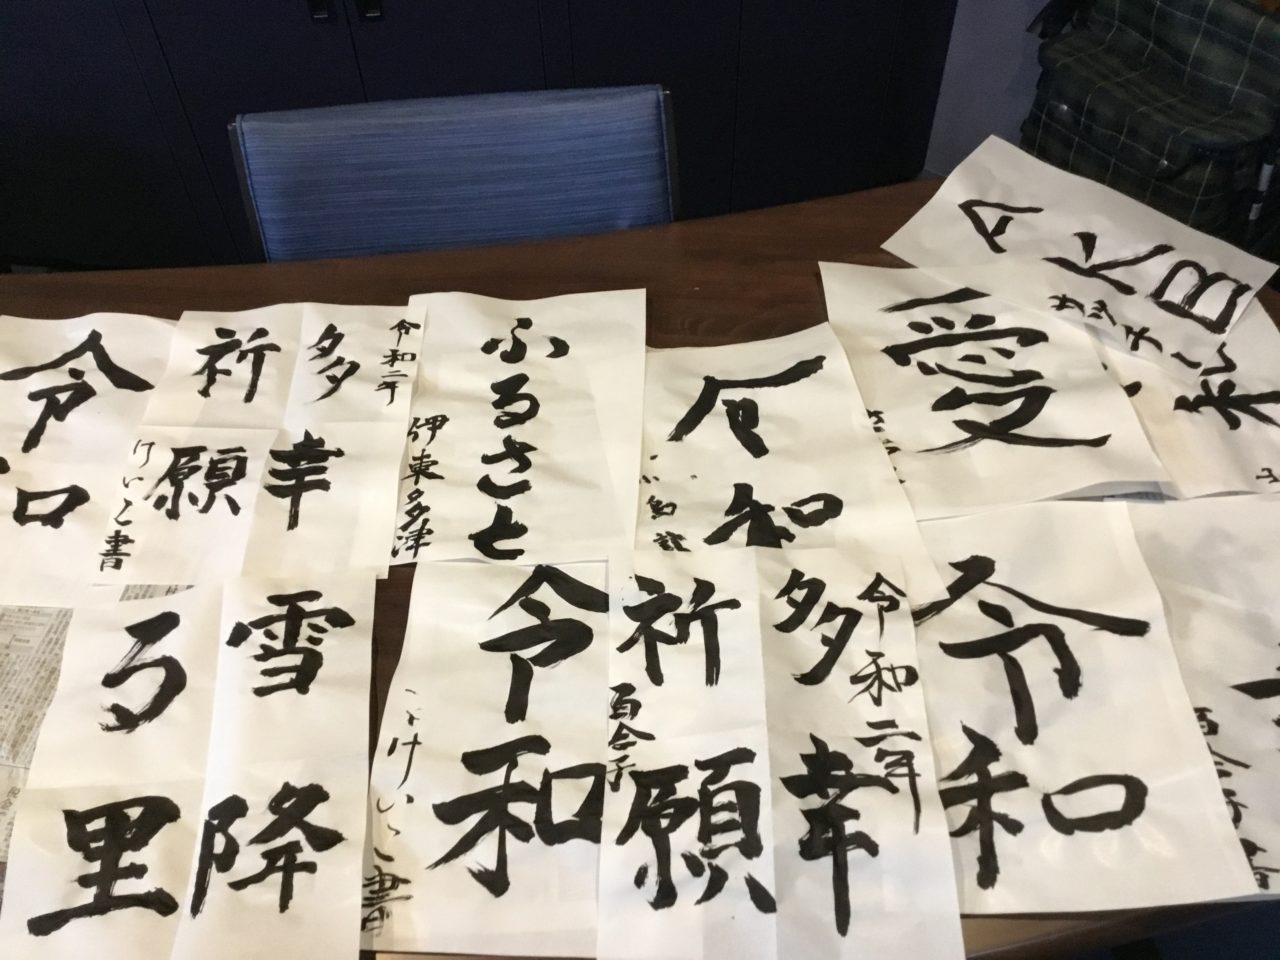 AKB
サッチー
札
愛
令和
多幸
祈願
令和二年
けいこ書
ふるさと
伊東多津
令和
雪降
る里
令和
けいこ書
多幸
祈願
令和二年
百合子
令和